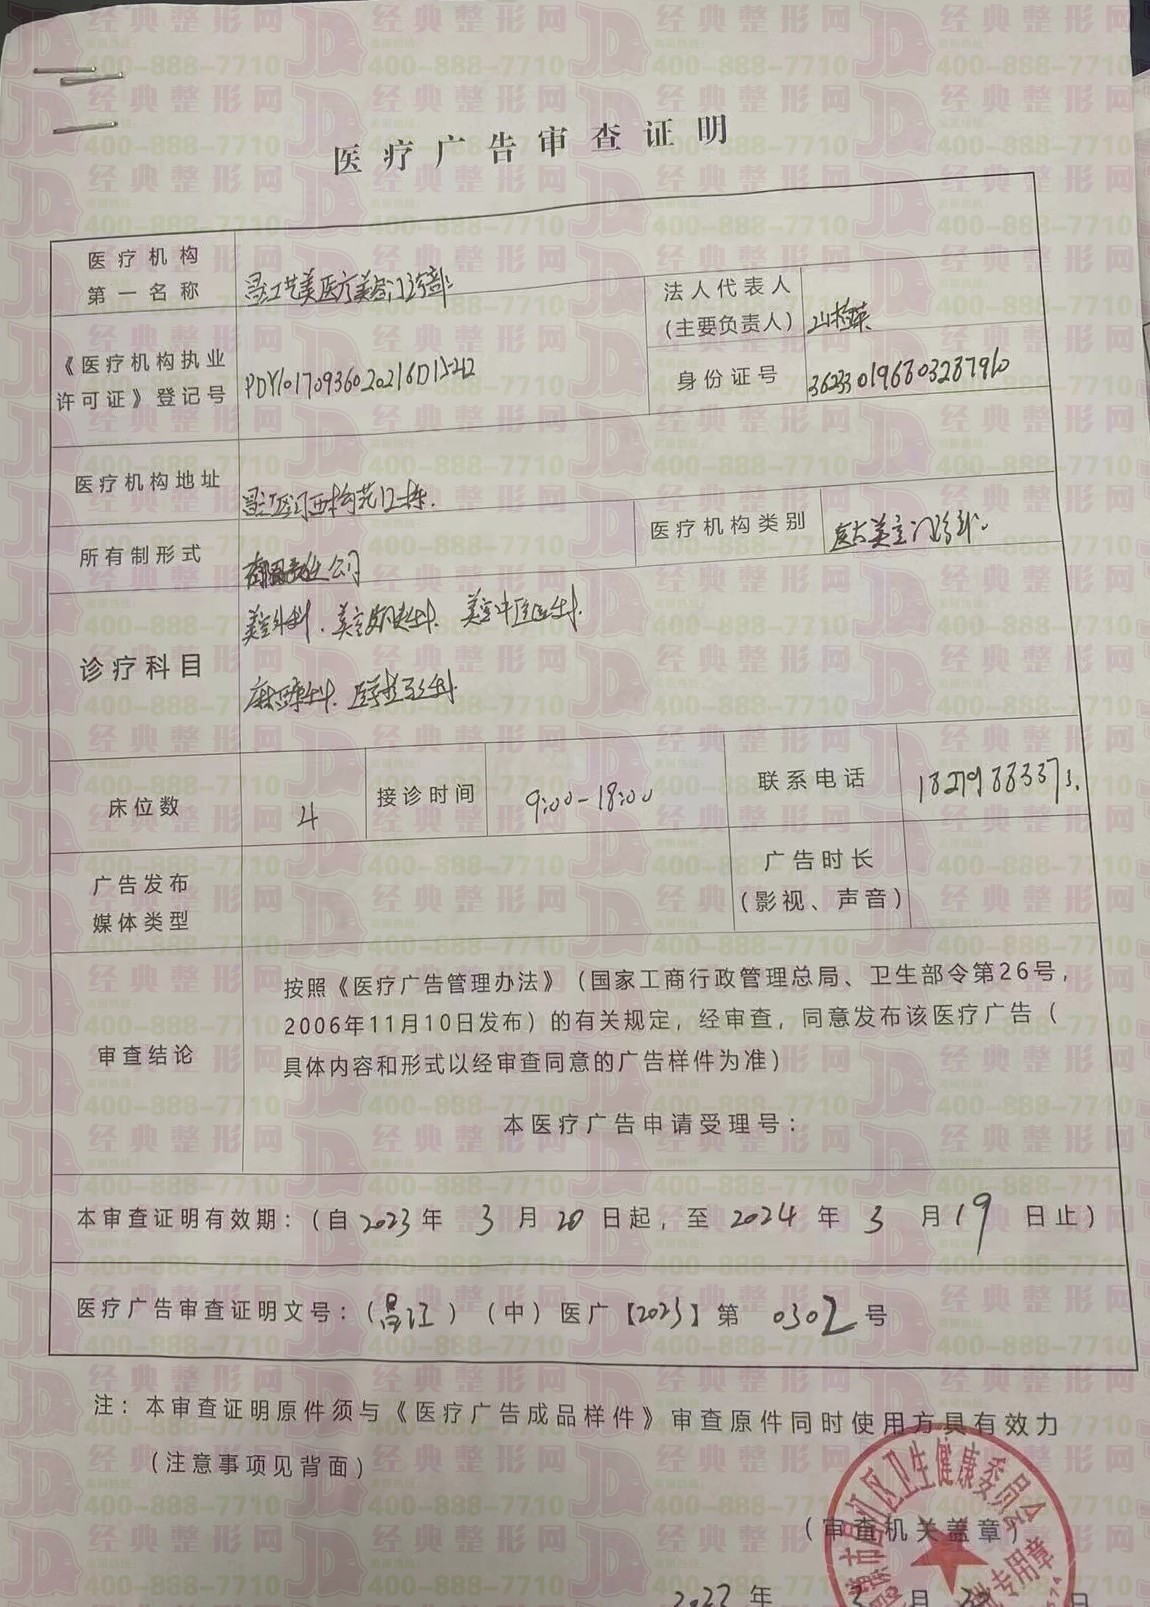 医疗广告审查证明
医疗机构
第一名称
昌江艺美医疗美容门诊部
法人代表人
(主要负责人)
《医疗机构执业
许可证》登记号
身份证号
医疗机构地址
所有制形式
有限责任公司
医疗机构类别
医疗美容门诊部
诊疗科目
美容外科、美容皮肤科、美容中医科
麻醉科、医学检验科
床位数
4
接诊时间
9:00-18:00
联系电话
广告发布
媒体类型
广告时长
(影视、声音)
审查结论
按照《医疗广告管理办法》(国家工商行政管理总局、卫生部令第26号,
2006年11月10日发布)的有关规定,经审查,同意发布该医疗广告(
具体内容和形式以经审查同意的广告样件为准)
本医疗广告申请受理号:
本审查证明有效期:(自2023年3月20日起,至2024年3月19日止)
医疗广告审查证明文号:(昌江)(中)医广【2023】第0302号
注:本审查证明原件须与《医疗广告成品样件》审查原件同时使用方具有效力
(注意事项见背面)
(审查机关盖章)
市昌江区卫生健康委员会
专用章
年 月 日
经典整形网
400-888-7710